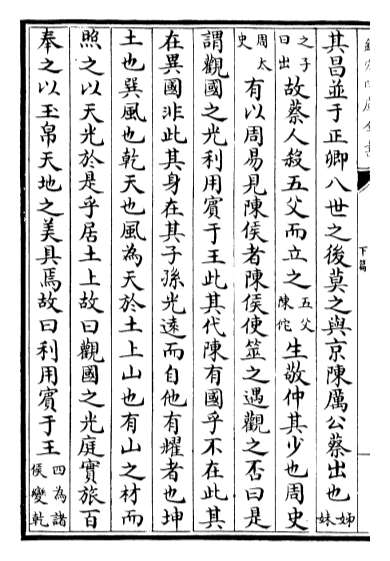 下篇
其昌並于正卿八世之後莫之與京陳厲公蔡出也姊妹
之子曰出故蔡人殺五父而立之五父陳佗生敬仲其少也周史
周太史有以周易見陳侯者陳侯使筮之遇觀之否曰是
謂觀國之光利用賓于王此其代陳有國乎不在此其
在異國非此其身在其子孫光逺而自他有耀者也坤
土也巽風也乾天也風為天於土上山也有山之材而
照之以天光於是乎居土上故曰觀國之光庭實旅百
奉之以玉帛天地之美具焉故曰利用賓于王四為諸侯變乾